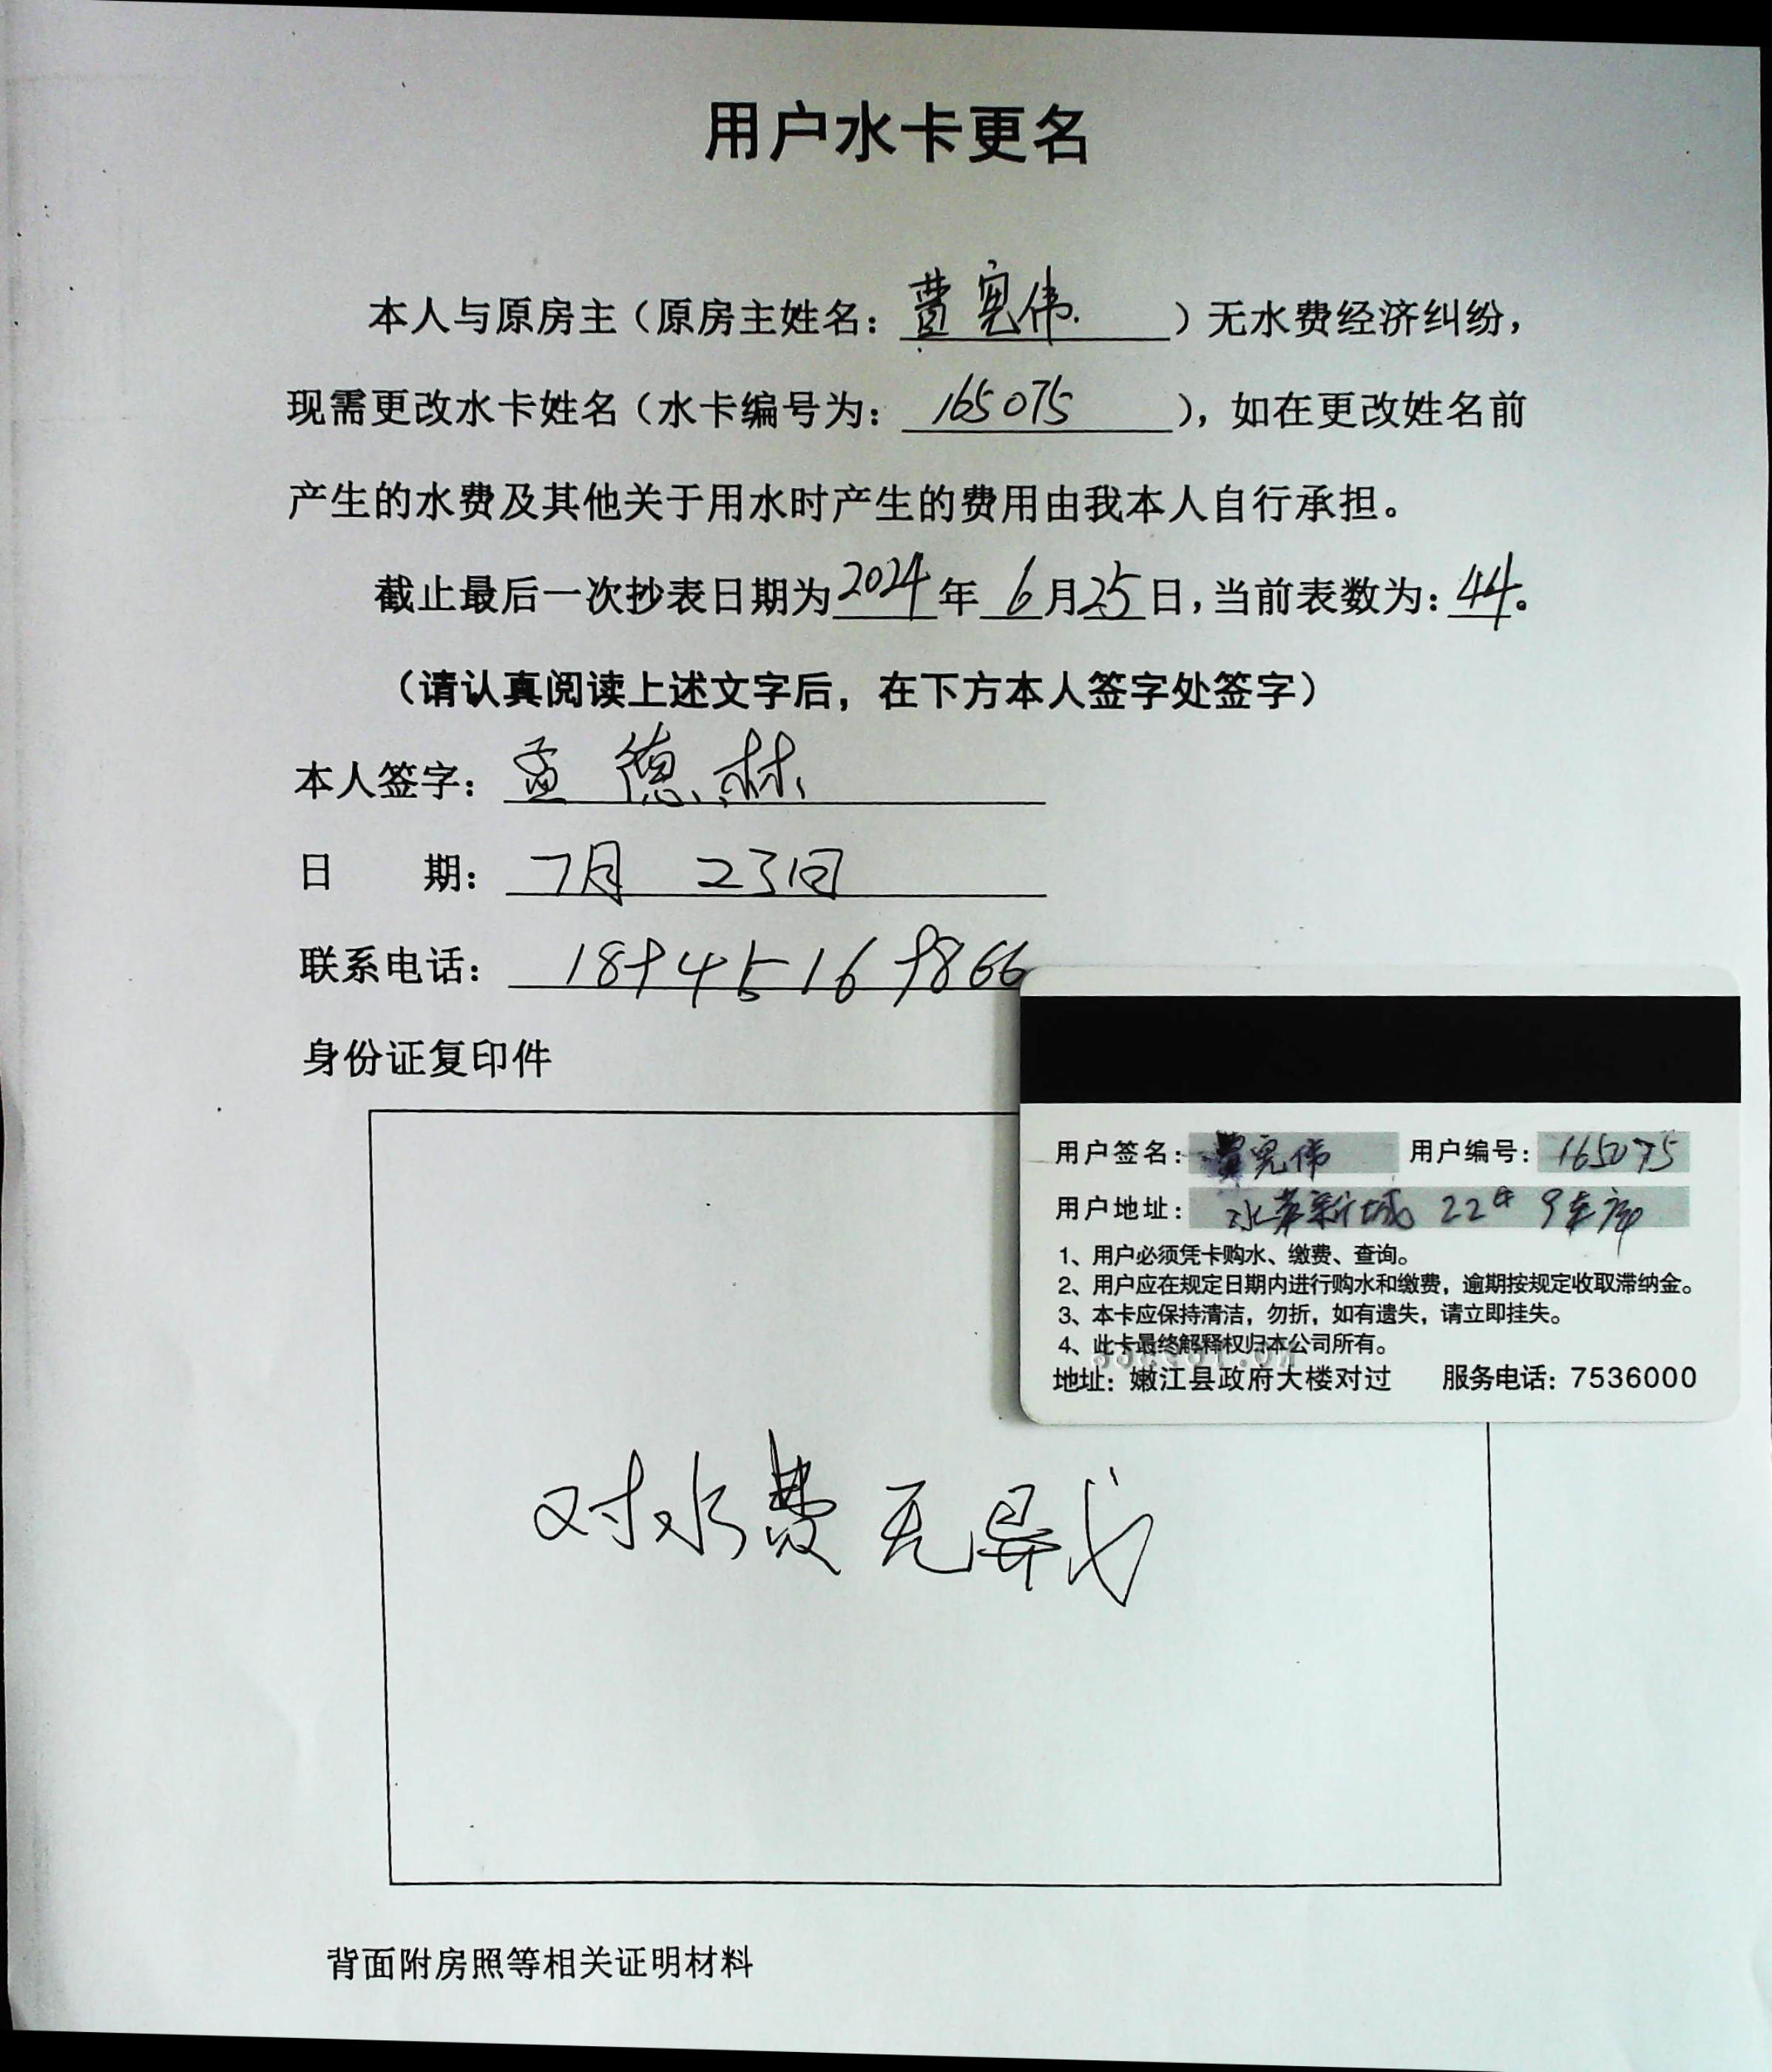 用户水卡更名
本人与原房主（原房主姓名：黄宪伟.）无水费经济纠纷，
现需更改水卡姓名（水卡编号为：165075），如在更改姓名前
产生的水费及其他关于用水时产生的费用由我本人自行承担。
截止最后一次抄表日期为2024年6月25日，当前表数为：44。
（请认真阅读上述文字后，在下方本人签字处签字）
本人签字：孟德林
日期：7月23日
联系电话：18945169866
身份证复印件
用户签名：黄宪伟 用户编号：165075
用户地址：水岸新城 22# 9车库
1、用户必须凭卡购水、缴费、查询。
2、用户应在规定日期内进行购水和缴费，逾期按规定收取滞纳金。
3、本卡应保持清洁，勿折，如有遗失，请立即挂失。
4、此卡最终解释权归本公司所有。
地址：嫩江县政府大楼对过 服务电话：7536000
对水费无异议
背面附房照等相关证明材料